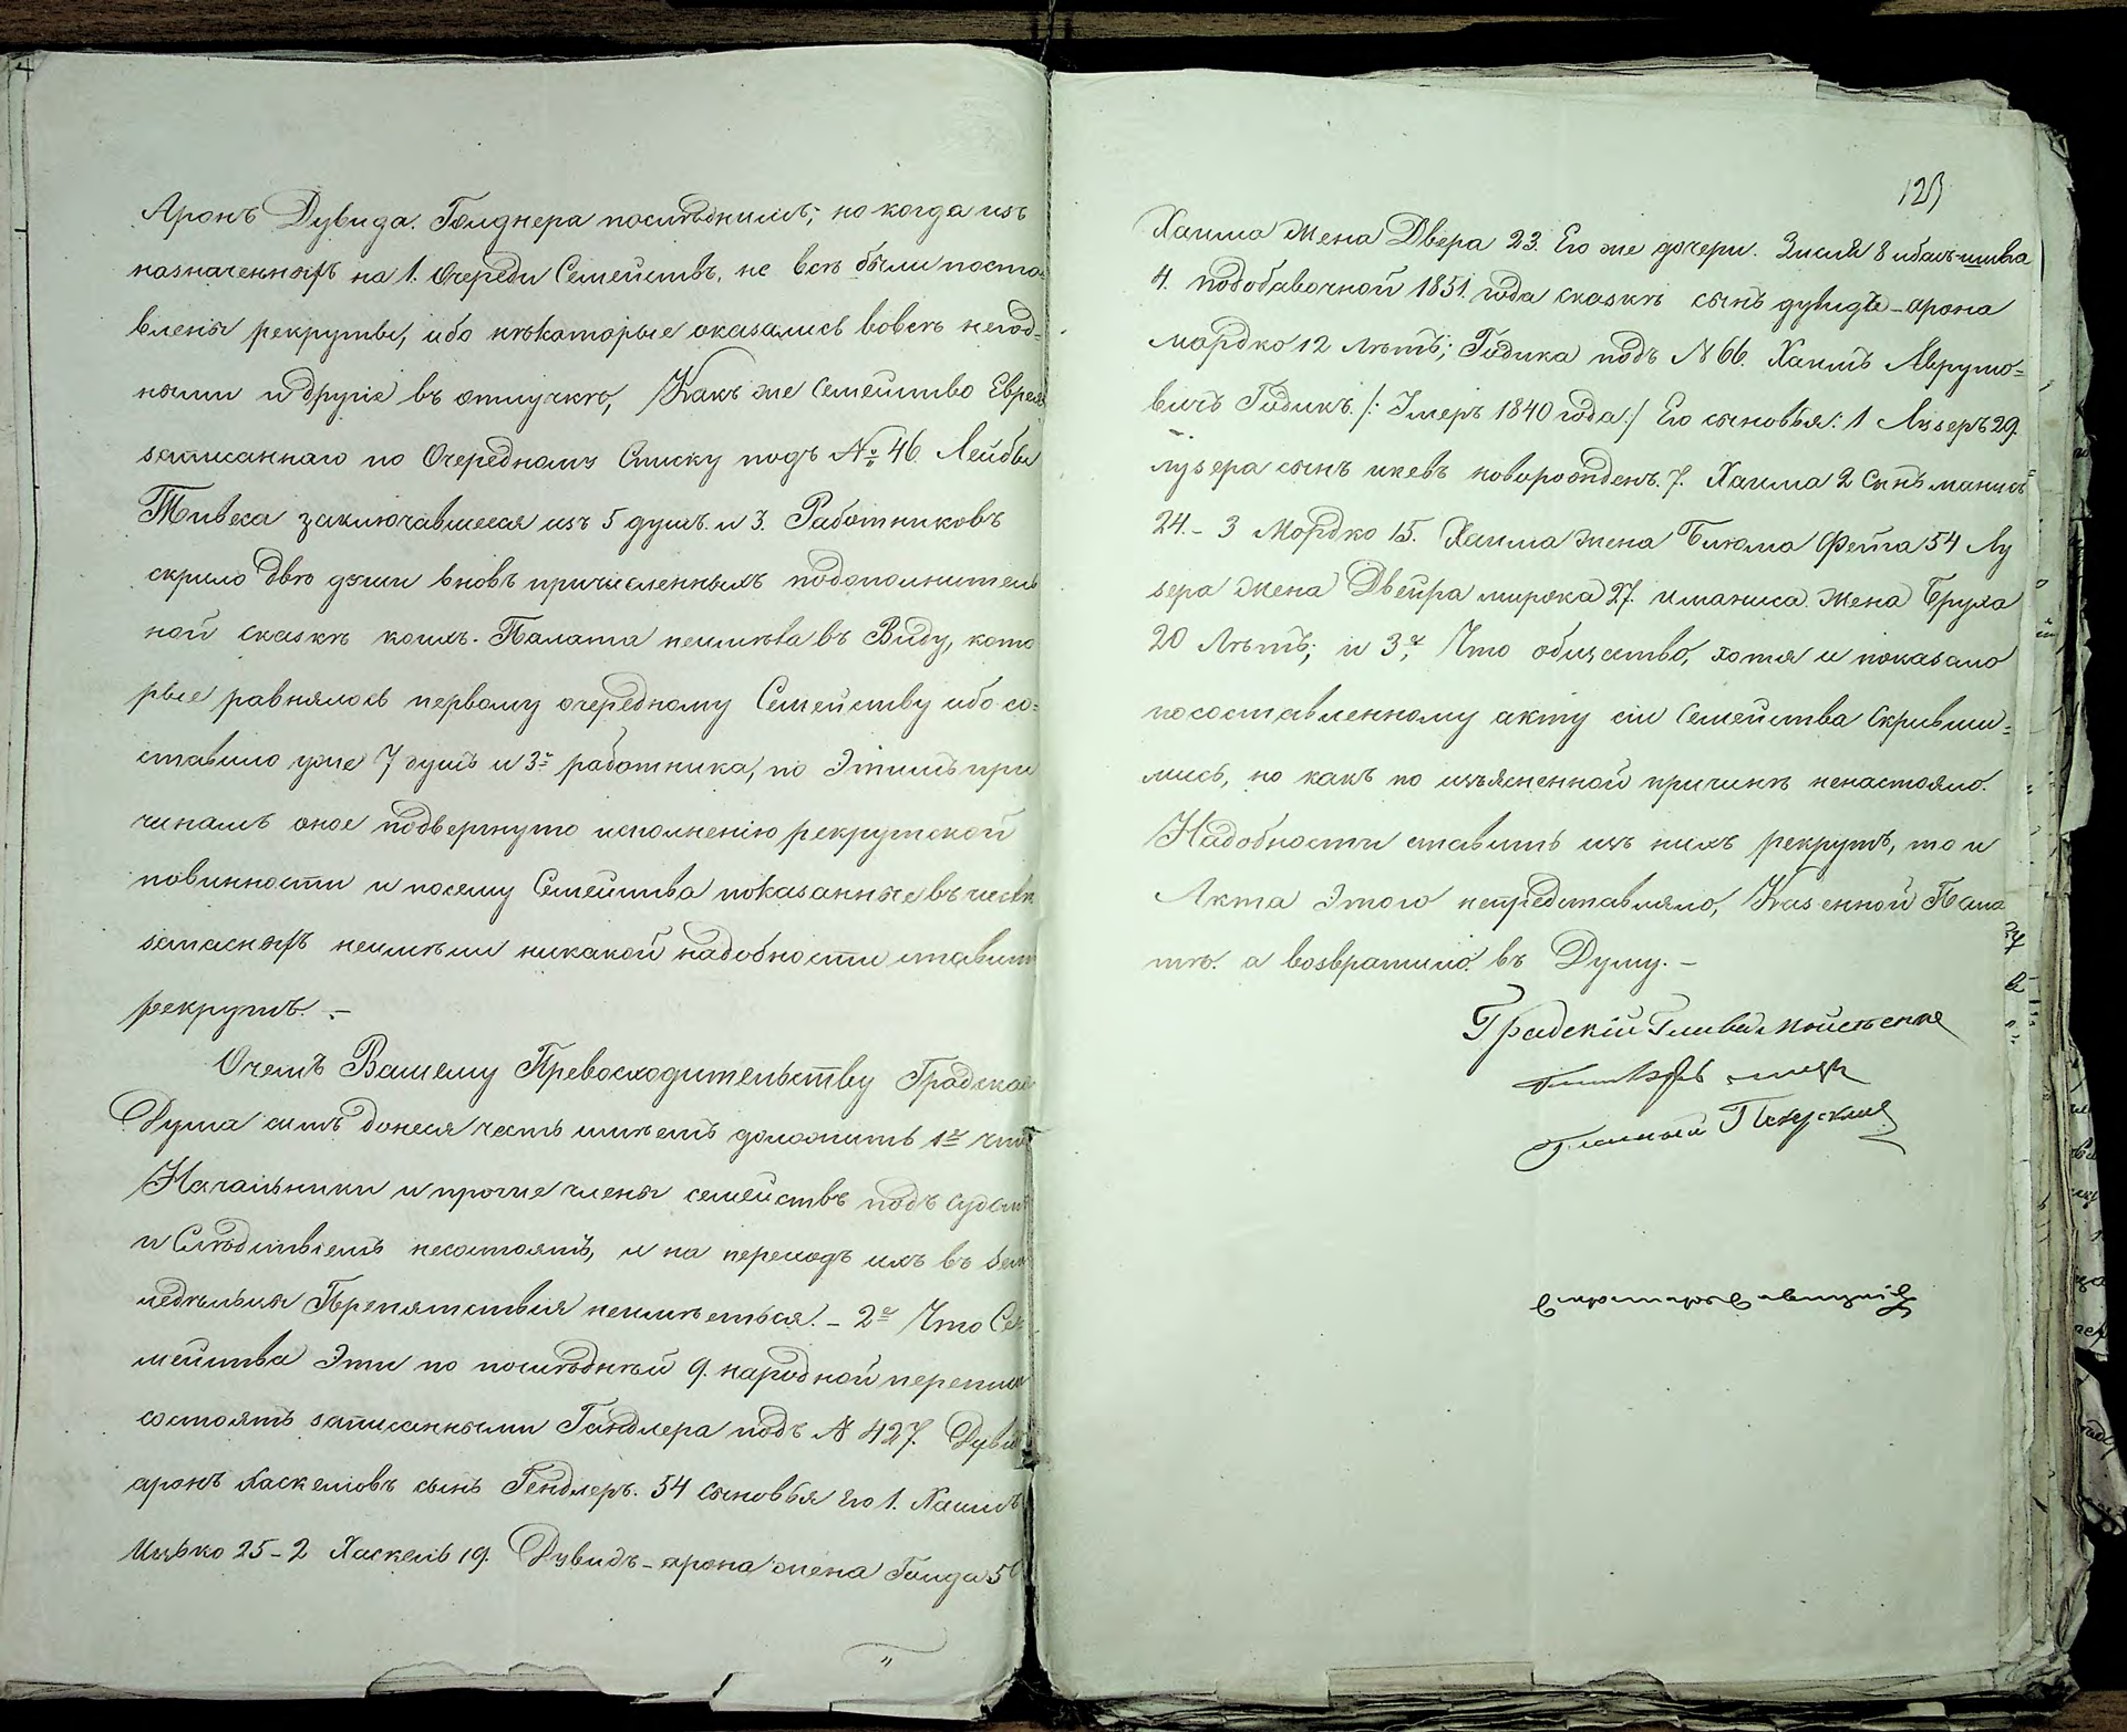 Аронъ Дувида. Голднера послѣднимъ; но когда изъ
назначенныхъ на 1. Очереди Семействъ, не всѣ были поста
влены рекруты, ибо нѣкоторые оказались вовсѣ негод=
ными и другіе въ отлучкѣ, Какъ же Семейство Еврея
записаннаго по Очередному Списку подъ № 46. Лейбы
Тивеса заключавшееся изъ 5 душъ и 3. Работниковъ
скрыло двѣ души вновь причисленныхъ подополнитель
ной сказкѣ коихъ. Палата неимѣла въ Виду, кото
рые равнялось первому очередному Семейству ибо со=
ставило уже 7 душъ и 3х работника, по Этимъ при
чинамъ оное подвергнуто исполненію рекрутской
повинности и посему Семейства показанные въ числѣ
запасныхъ неимѣли никакой надобности ставить
рекрутъ. –
Очемъ Вашему Превосходительству Градская
Дума симъ донеся честь имѣетъ доложить 1е что
Начальники и прочие члены семействъ подъ судомъ
и Слѣдствіемъ несостоятъ, и на переходъ ихъ въ зем
ледѣльцы Препятствия неимѣеться. – 2е Что Се=
мейства Эти по послѣдней 9. народной переписи
состоятъ записанными Гандлера подъ № 427. Дувидъ
аронъ Хаскелювъ сынъ Гендлеръ. 54 сыновья его 1. Хаимъ
Ицько 25 – 2 Хаскель 19. Дувидъ – арона жена Голда 50
123
Хаима жена Двера 23. Его же дочери. Зисля 8 ибась-шива
4. подобавочной 1851. года сказкѣ сынъ дувидъ – арона
мордко 12 лѣтъ; Гидика подъ № 66. Хаимъ Аврумо=
вичъ Гидикъ. /: Умеръ 1840 года :/ Его сыновья: 1 Лузеръ 29.
лузера сынъ икевъ новорожденъ. 7. Хаима 2 Сынъ манисъ
24. – 3 Мордко 15. Хаима жена Блюма Фейга 54 Лу
зера жена Двейра мирка 27. иманиса. жена Бруха
20 Лѣтъ; и 3е, Что общество, хотя и показало
посоставленному акту сіи Семейства Скрывши=
мись, но какъ по изъясненной причинѣ ненастояло.
Надобности ставить изъ нихъ рекрутъ, то и
Акта Этого непредставляло, Казенной Пала
тѣ. а возвратило. въ Думу. –
Градскій Глава Мойсѣенко
Гласный
Секретарь Савицкій